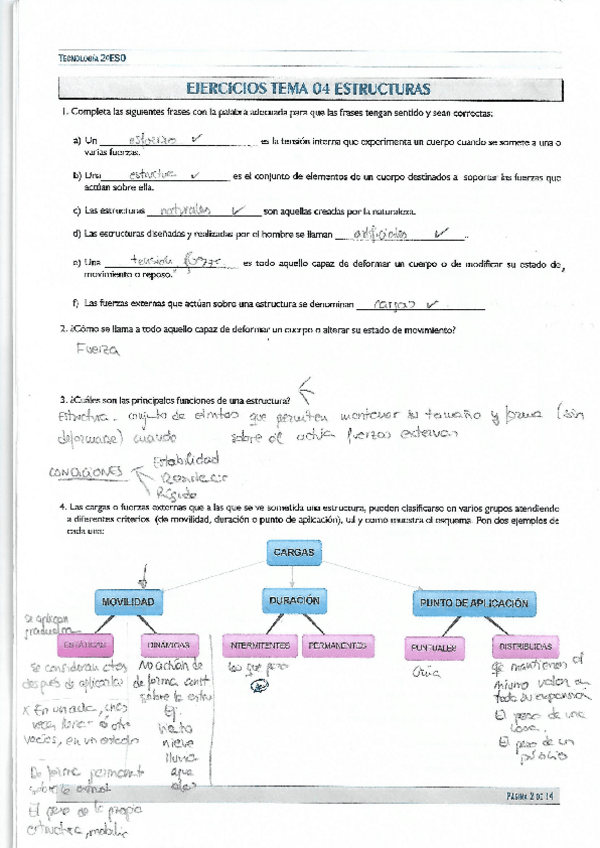 TECNOLOGÍA 2ºESO
EJERCICIOS TEMA 04 ESTRUCTURAS
1. Completa las siguientes frases con la palabra adecuada para que las frases tengan sentido y sean correctas:
a) Un esfuerzo ✓ es la tensión interna que experimenta un cuerpo cuando se somete a una o
varias fuerzas.
b) Una estructura ✓ es el conjunto de elementos de un cuerpo destinados a soportar las fuerzas que
actúan sobre ella.
c) Las estructuras naturales ✓ son aquellas creadas por la naturaleza.
d) Las estructuras diseñadas y realizadas por el hombre se llaman artificiales ✓.
e) Una tensión fuerza es todo aquello capaz de deformar un cuerpo o de modificar su estado de
movimiento o reposo.
f) Las fuerzas externas que actúan sobre una estructura se denominan cargas ✓
2. ¿Cómo se llama a todo aquello capaz de deformar un cuerpo o alterar su estado de movimiento?
Fuerza
3. ¿Cuáles son las principales funciones de una estructura?
Estructura. conjunto de que permiten mantener su tamaño y forma (sin
deformarse) cuando sobre el actúan fuerzas externas
CONDICIONES
Estabilidad
Resistencia
Rígido
4. Las cargas o fuerzas externas que a las que se ve sometida una estructura, pueden clasificarse en varios grupos atendiendo
a diferentes criterios (de movilidad, duración o punto de aplicación), tal y como muestra el esquema. Pon dos ejemplos de
cada una:
CARGAS
MOVILIDAD
DURACIÓN
PUNTO DE APLICACIÓN
Se aplican
ESTÁTICAS
DINÁMICAS
INTERMITENTES
PERMANENTES
PUNTUALES
DISTRIBUIDAS
Se consideran
después de
No actúan de
forma const
sobre la estru
Ej:
viento
nieve
lluvia
agua
olas
los que
Grúa
Se mantienen el
mismo valor en
toda su expansión
El peso de una
El peso de un
De forma permanent
sobre la
El peso de la propia
estructura,
PÁGINA 2 DE 14